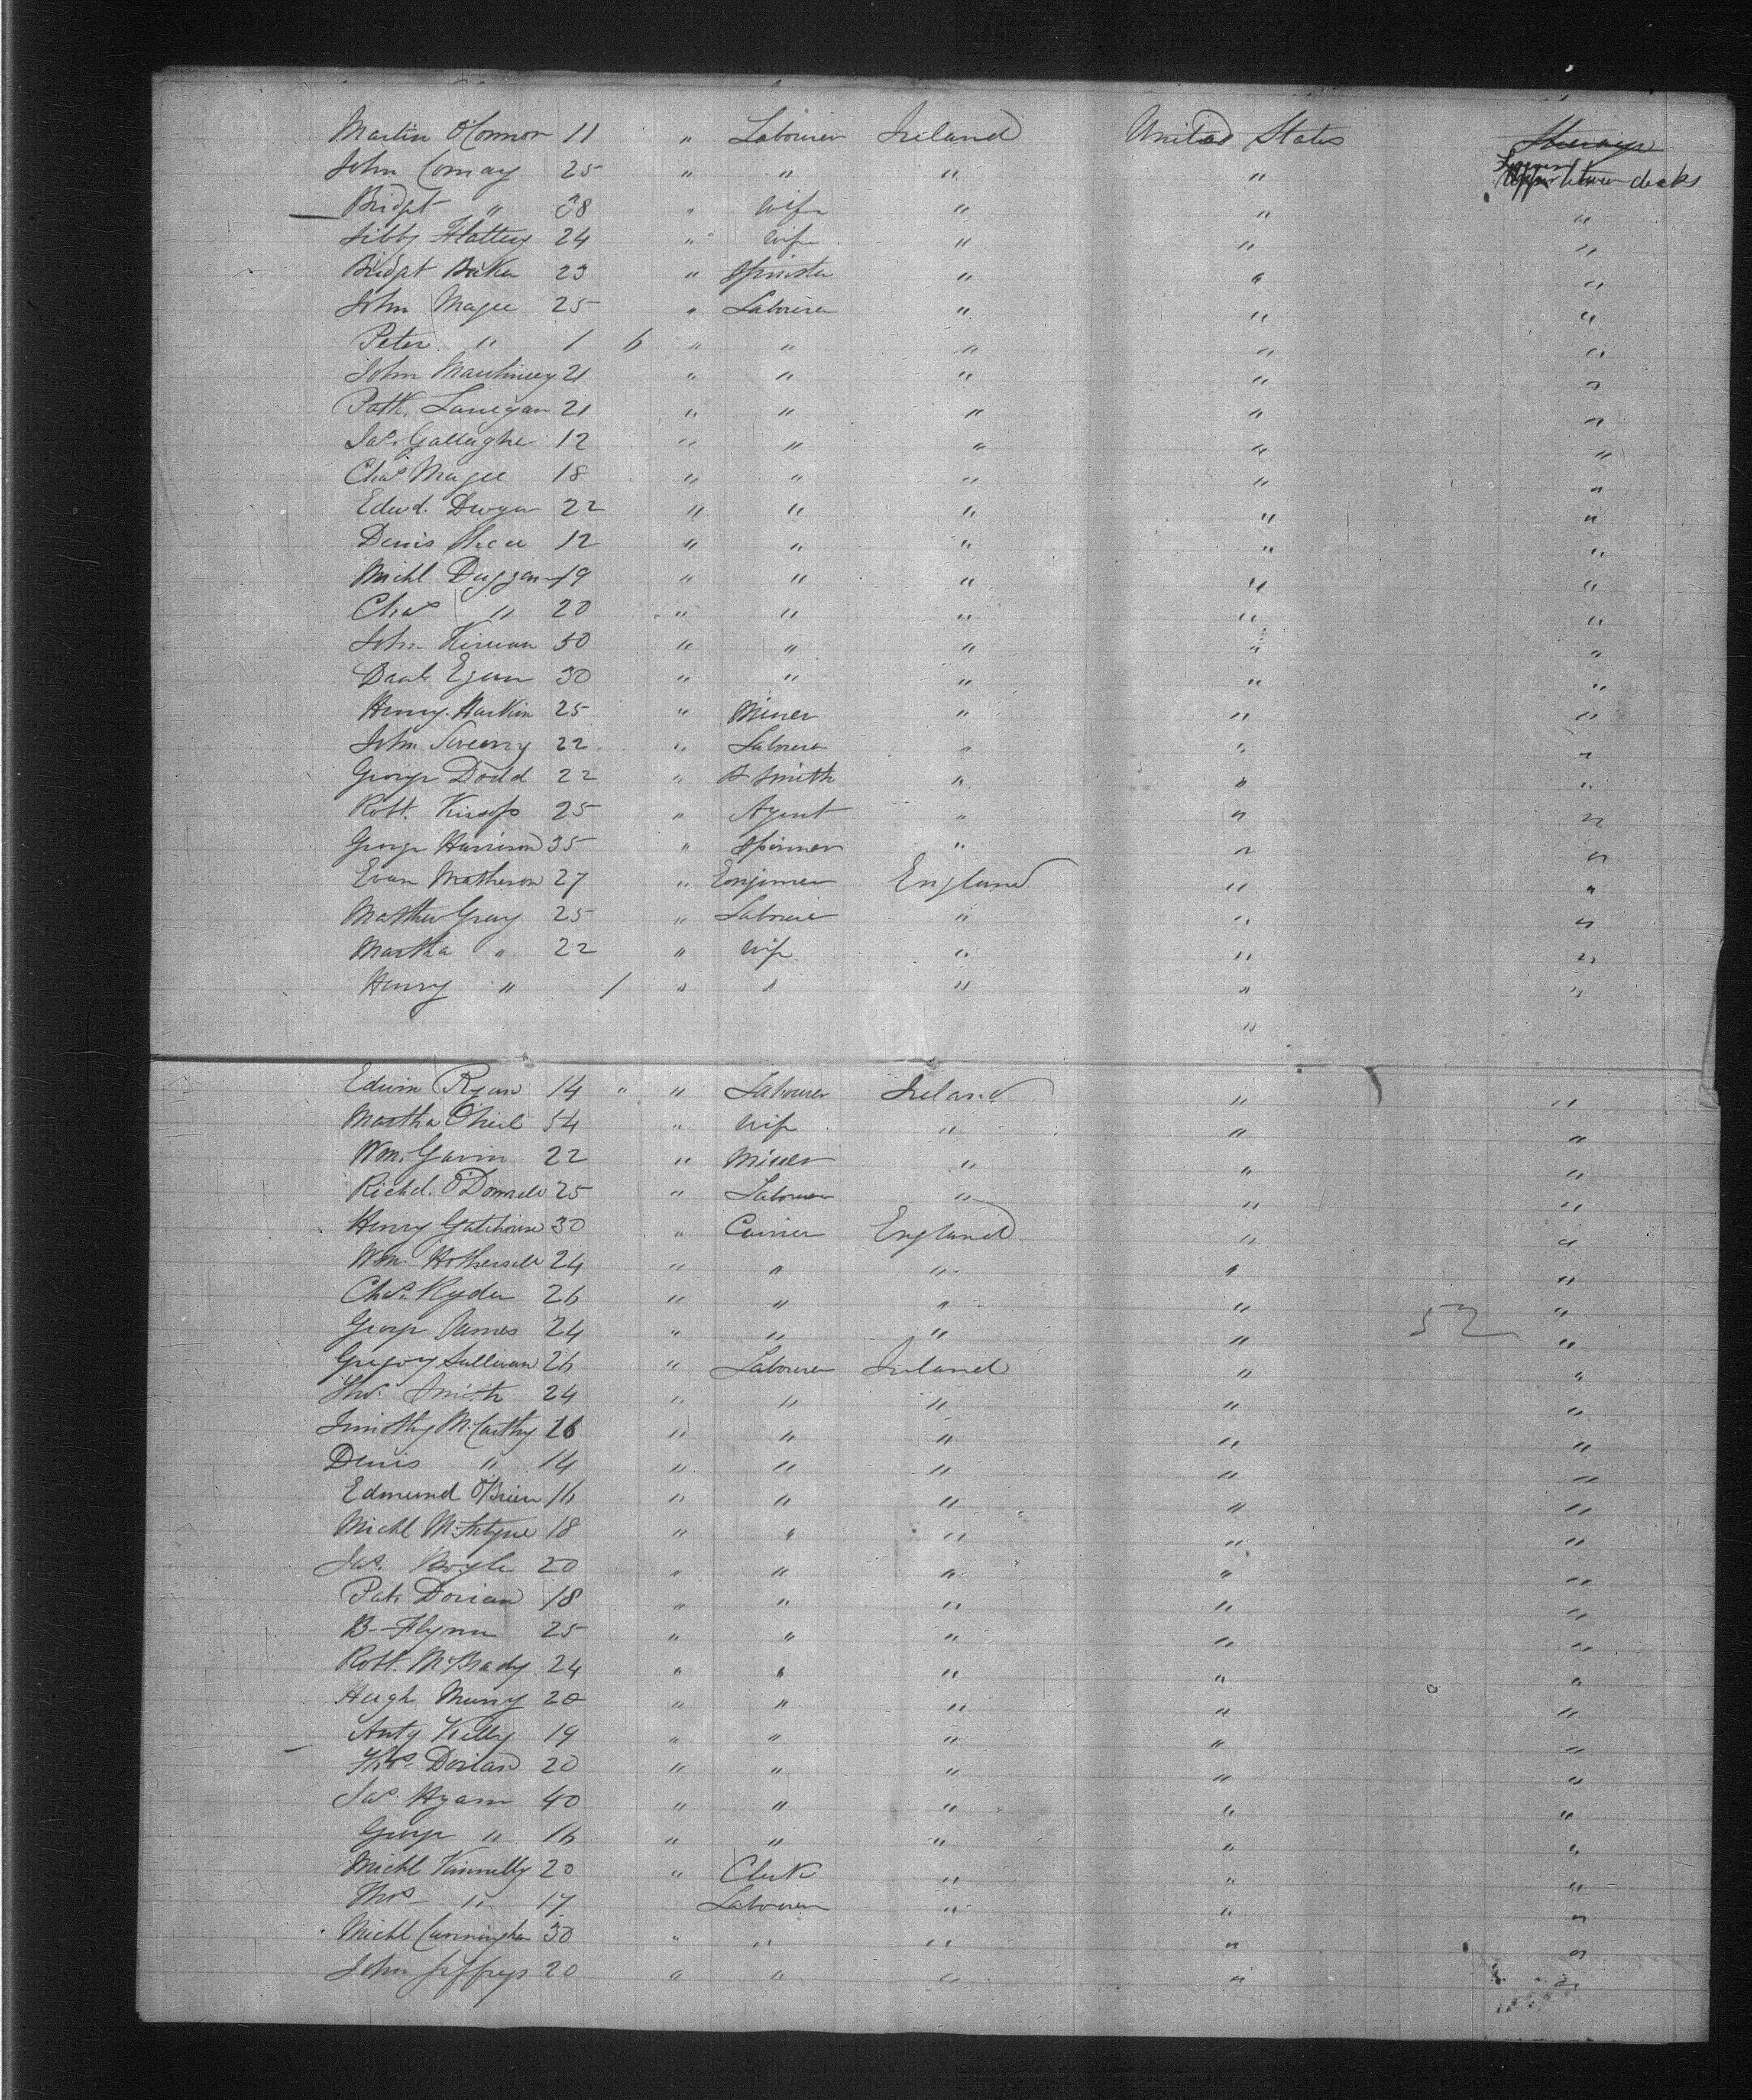 Martin O'Connor 11 " Labourer Ireland United States Steerage
John Conway 25 " " " " Upper between decks
Bridgt " 38 " Wife " " "
Sibby Flattery 24 " Wife " " "
Bridgt Baker 23 " Spinster " " "
John Magee 25 " Labourer " " "
Peter " 1 6 " " " " "
John 21 " " " " "
Patk. Lanegan 21 " " " " "
Jas. Gallaghe 12 " " " " "
Chas Magee 18 " " " " "
Edwd. Dwyer 22 " " " " "
Denis Shea 12 " " " " "
Michl Duggan 19 " " " " "
Chas " 20 " " " " "
John Kirwan 50 " " " " "
Egan 30 " " " " "
Henry Harkin 25 " Miner " " "
John Sweeny 22 " Labourer " " "
George Dodd 22 " B Smith " " "
Robt. Kissops 25 " Agent " " "
George Harrison 35 " Spinner " " "
Evan Matheson 27 " Engineer England " "
Matthew Gray 25 " Labourer " " "
Martha " 22 " Wife " " "
Henry " 1 " " " " "
"
Edwin Ryan 14 " " Labourer Ireland " "
Martha O'Neil 54 " Wife " " "
Wm. Gavin 22 " Miner " " "
Richd. O'Donnell 25 " Labourer " " "
Henry Gatehouse 30 " Currier England " "
Wm. Hothersall 24 " " " " "
Chas. Ryder 26 " " " " "
George James 24 " " " " 52 "
Gregory Sullivan 26 " Labourer Ireland " "
Thos. Smith 24 " " " " "
Timothy McCarthy 26 " " " " "
Denis " 14 " " " " "
Edmund O'Brien 16 " " " " "
Michl McIntyre 18 " " " " "
Jas. Boyle 20 " " " " "
Patk Dorian 18 " " " " "
B Flynn 25 " " " " "
Robt. McBrady 24 " " " " "
Hugh Murry 20 " " " " "
Anty Kelly 19 " " " " "
Thos. Dorian 20 " " " " "
Jas. Hyam 40 " " " " "
George " 16 " " " " "
Michl Kinnelly 20 " Clerk " " "
Thos " 17 Labourer " " "
Michl Cunningham 30 " " " " "
John Jeffreys 20 " " " " "